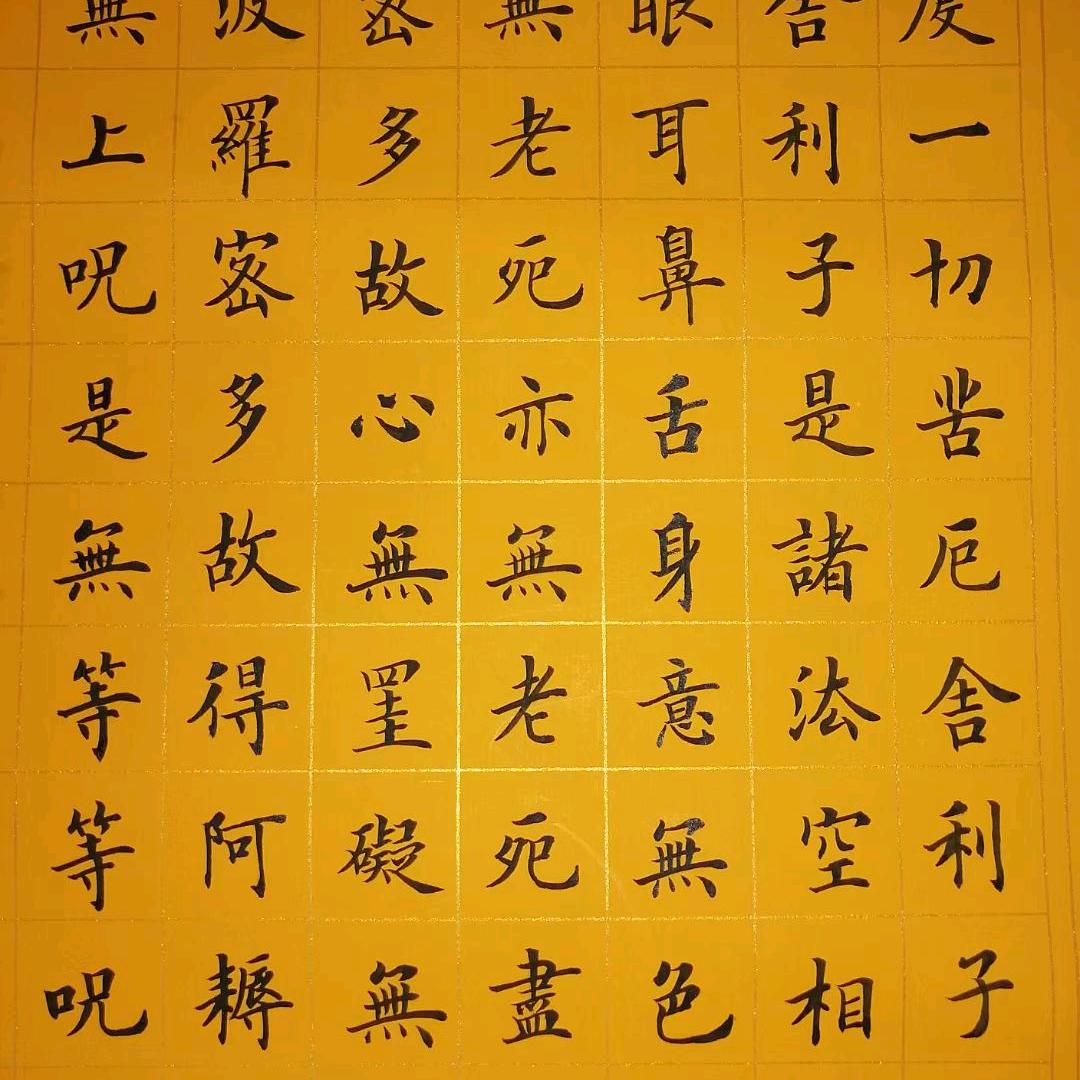 度一切苦厄舍利子
舍利子是諸法空相
眼耳鼻舌身意無色
無老死亦無老死盡
密多故心無罣礙無
波羅密多故得阿耨
無上呪是無等等呪